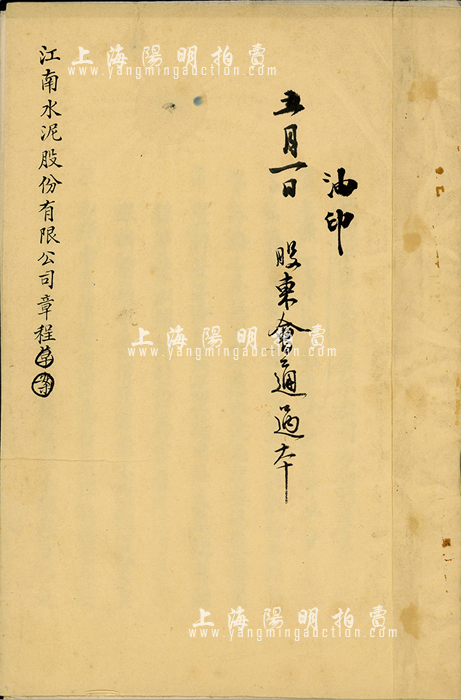 油印
五月一日 股東會通過本
江南水泥股份有限公司章程草案
上海陽明拍賣
www.yangmingauction.com
上海陽明拍賣
www.yangmingauction.com
上海陽明拍賣
www.yangmingauction.com